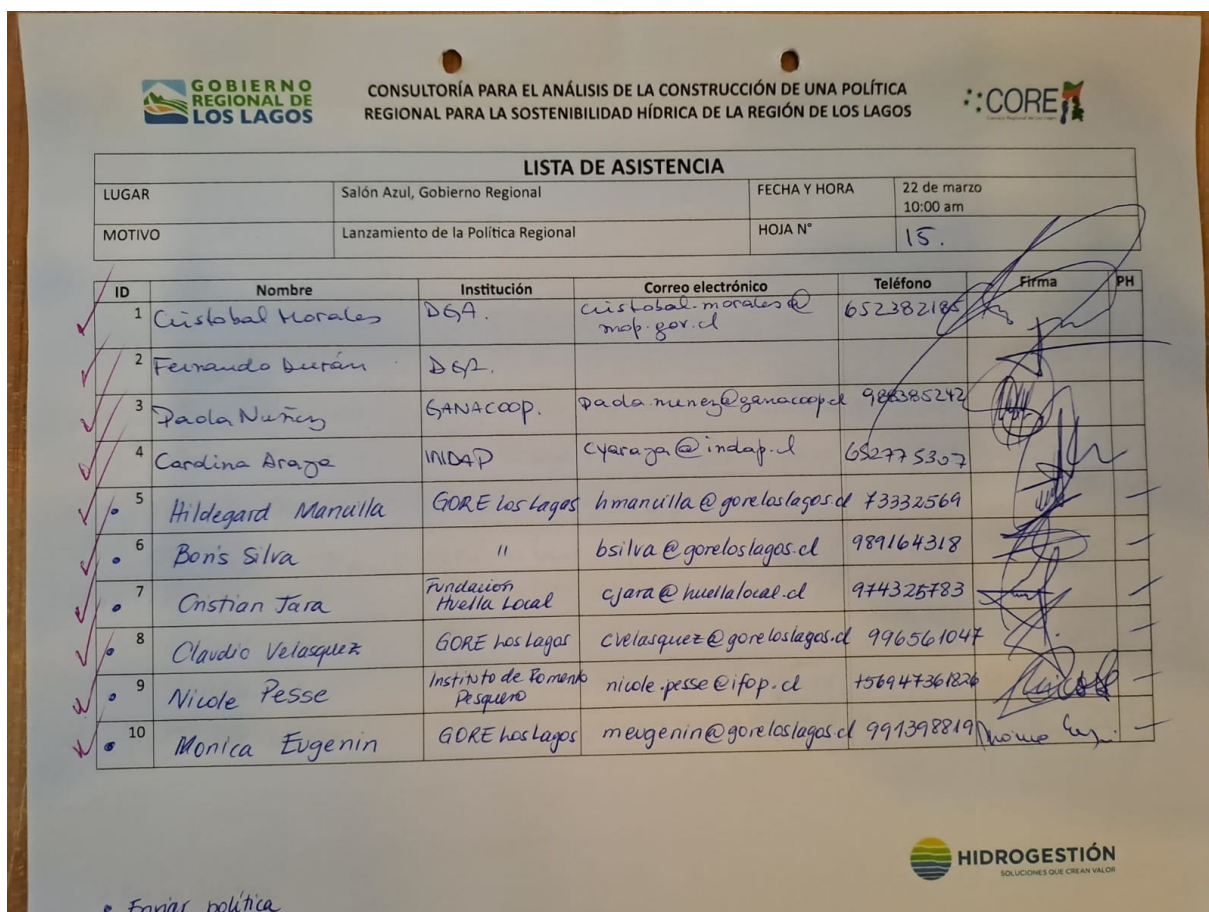 GOBIERNO
REGIONAL DE
LOS LAGOS
CONSULTORÍA PARA EL ANÁLISIS DE LA CONSTRUCCIÓN DE UNA POLÍTICA
REGIONAL PARA LA SOSTENIBILIDAD HÍDRICA DE LA REGIÓN DE LOS LAGOS
CORE
LISTA DE ASISTENCIA
LUGAR Salón Azul, Gobierno Regional FECHA Y HORA 22 de marzo
10:00 am
MOTIVO Lanzamiento de la Política Regional HOJA N° 15.
ID Nombre Institución Correo electrónico Teléfono Firma PH
1 Cristobal Morales DGA. cristobal.morales@ 652382185
mop.gov.cl
2 Fernando Durán DGA.
3 Paola Nuñez GANACOOP. paola.nunez@ganacoop.cl 988385242
4 Carolina Araya INDAP cyaraya@indap.cl 652775307
5 Hildegard Mancilla GORE Los Lagos hmancilla@goreloslagos.cl 73332569
6 Boris Silva " bsilva@goreloslagos.cl 989164318
7 Cristian Jara Fundación
Huella Local cjara@huellalocal.cl 974325783
8 Claudio Velasquez GORE Los Lagos cvelasquez@goreloslagos.cl 996561047
9 Nicole Pesse Instituto de Fomento
Pesquero nicole.pesse@ifop.cl +56947361826
10 Monica Eugenin GORE Los Lagos meugenin@goreloslagos.cl 991398819
HIDROGESTIÓN
SOLUCIONES QUE CREAN VALOR
• Enviar política